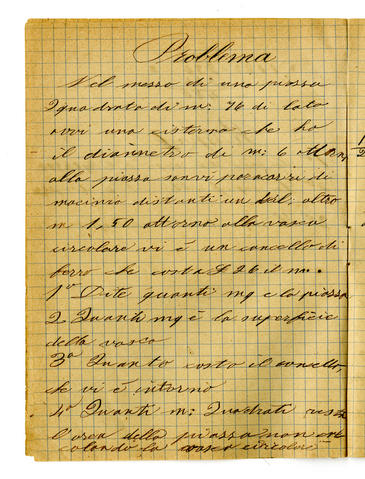 Problema
Nel messo di una piassa
Quadrata di m: 76 di lato
avvi una cisterna che ha
il diametro di m: 6 attorn
alla piassa sonvi paracarri di
macinio distanti un dal: altro
m 1,50 attorno alla vasca
circolare vi é un concello di
ferro che costa £ 26 il m.
1º Dite quanti mq e la piassa
2 Quanti mq é la superficie
della vasca
3ª Quanto costo il concello,
che vi é intorno
4ª Quanti m: Quadrati
l'area della piassa non
colando la vasca circolar
1
2